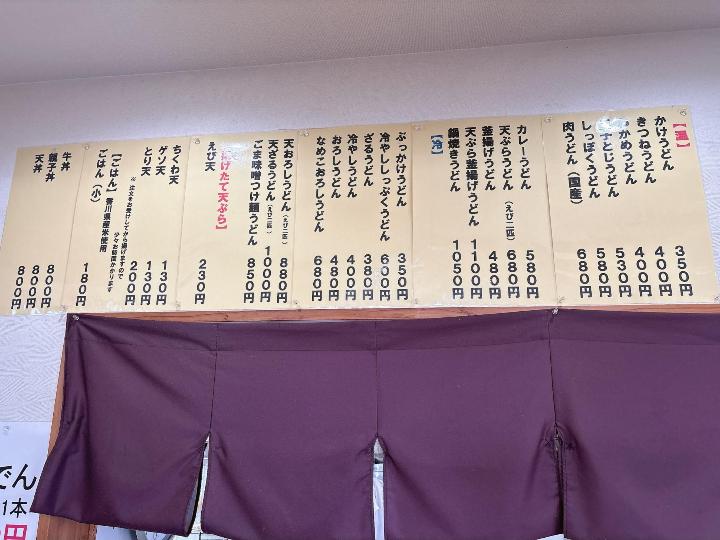 【温】
かけうどん 350円
きつねうどん 400円
かめうどん 400円
とじうどん 530円
しっぽくうどん 580円
肉うどん（国産） 680円
カレーうどん 580円
天ぷらうどん（えび二匹） 680円
釜揚げうどん 480円
天ぷら釜揚げうどん 1100円
鍋焼きうどん 1050円
【冷】
ぶっかけうどん 350円
冷やししっぷくうどん 600円
ざるうどん 380円
冷やしうどん 400円
おろしうどん 480円
なめこおろしうどん 680円
天おろしうどん（えび二匹） 880円
天ざるうどん（えび二匹） 1000円
ごま味噌つけ麺うどん 850円
げたて天ぷら】
えび天 230円
ちくわ天 130円
ゲソ天 130円
とり天 200円
※ 注文をお受けしてから揚げますので
少々お時間かかります
【ごはん】香川県産米使用
ごはん（小） 180円
牛丼 800円
親子丼 800円
天丼 800円
でん
1本
円